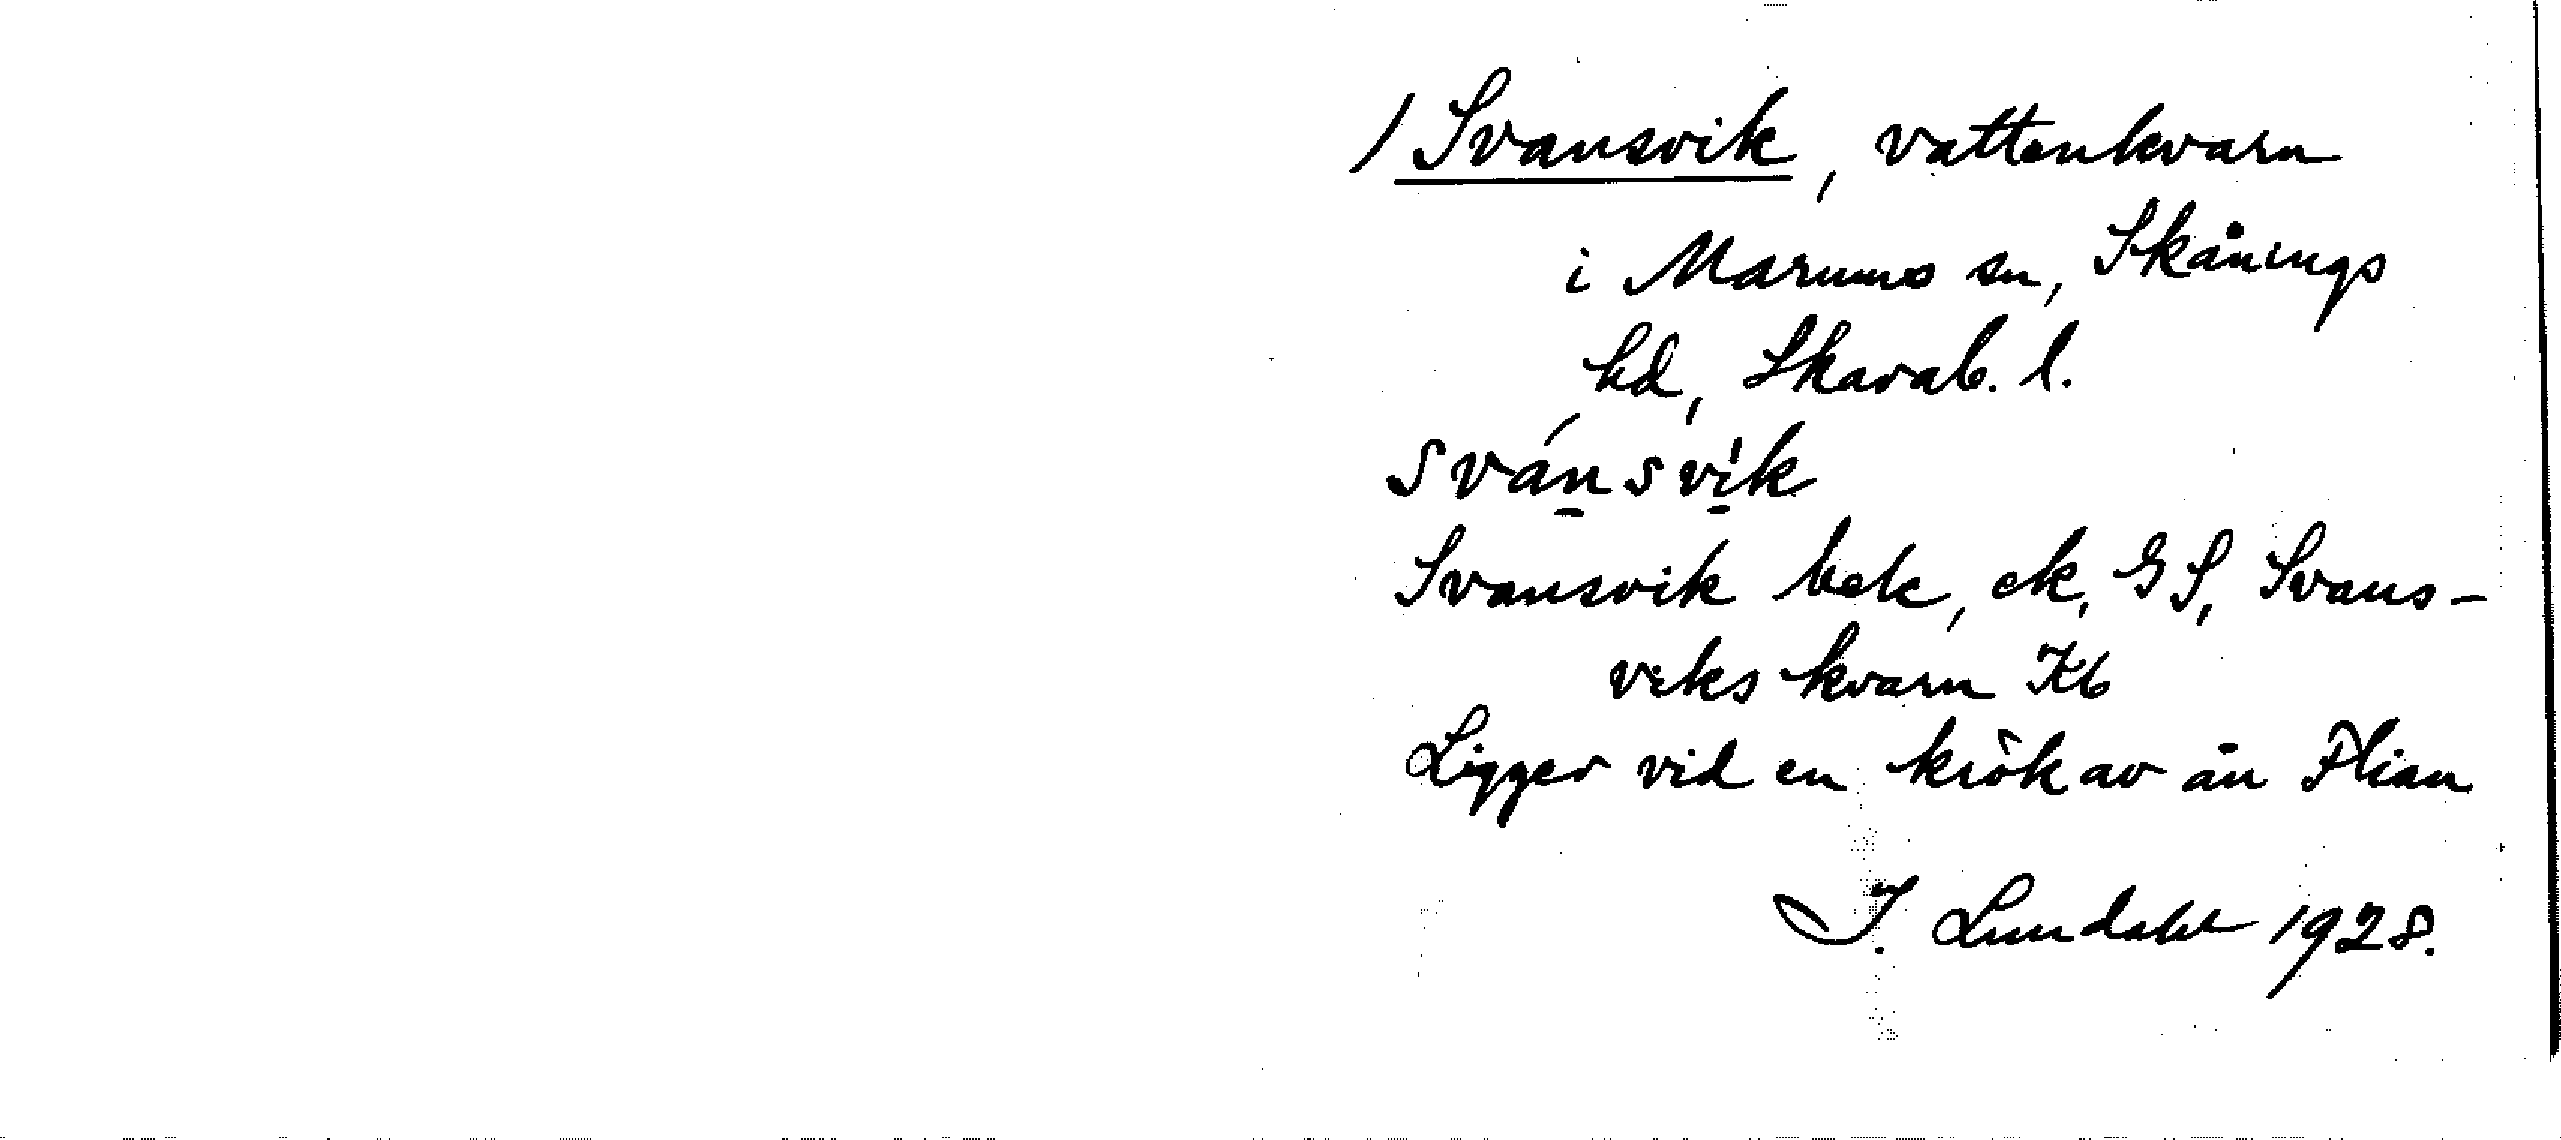 / Svansvik, vattenkvarn
i Marums sn, Skånings
hd, Skarab. l.
svánsvìk
Svansvik bek, ek, GS, Svans-
viks kvarn Kb
Ligger vid en krök av ån Flian
I. Lundahl 1928.